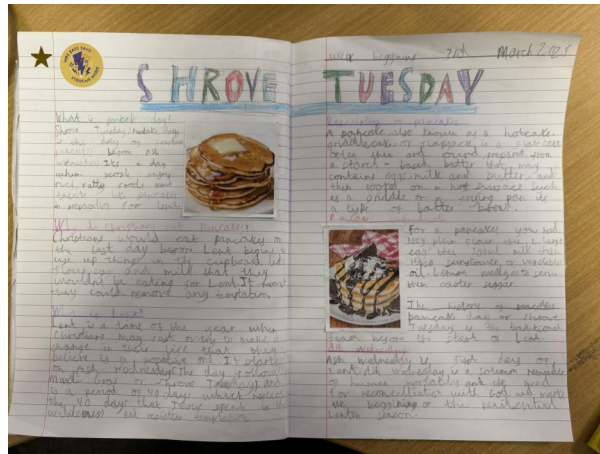 SHROVE TUESDAY
What is pancake day?
Shrove Tuesday/Pancake Day
is the day of
before Ash
Wednesday. It's a day
when people enjoy
rich fatty foods and
like pancakes
in preparation for lent.
Christians eat Pancakes?
Christians would eat pancakes on
the last day before Lent begins
use up things in the cupboard like
flour, egg and milk that they
wouldn't be eating for Lent. It meant
they could remove any temptation.
What is Lent?
Lent is a time of the year when
Christians may fast or try to make a
change in their life that they
believe is a positive one. It starts
on Ash Wednesday (the day following
Mardi Gras or Shrove Tuesday) and
is a period of 40 days which
the 40 days that Jesus spent in the
wilderness and resisted temptation.
week beginning 3rd March 2025
pancake
A pancake, also known as a hotcake,
griddlecake or flapjack, is a flat cake
often thin and round, prepared from
a starch-based batter that may
contains egg, milk and butter and
then cooked on a hot surface such
as a griddle or a frying pan. It's
a type of batter bread.
Pancake
For a pancake you need
plain flour, 2 large
eggs,
sunflower, or vegetable
oil Lemon wedges to serve
then caster sugar.
The history of pancakes
pancake day or Shrove
Tuesday is the traditional
feast before the start of Lent.
Ash Wednesday
Ash Wednesday is first day of
Lent. Ash Wednesday is a solemn reminder
of human mortality and the need
for reconciliation with God and marks
the beginning of the penitential
Lenten season.